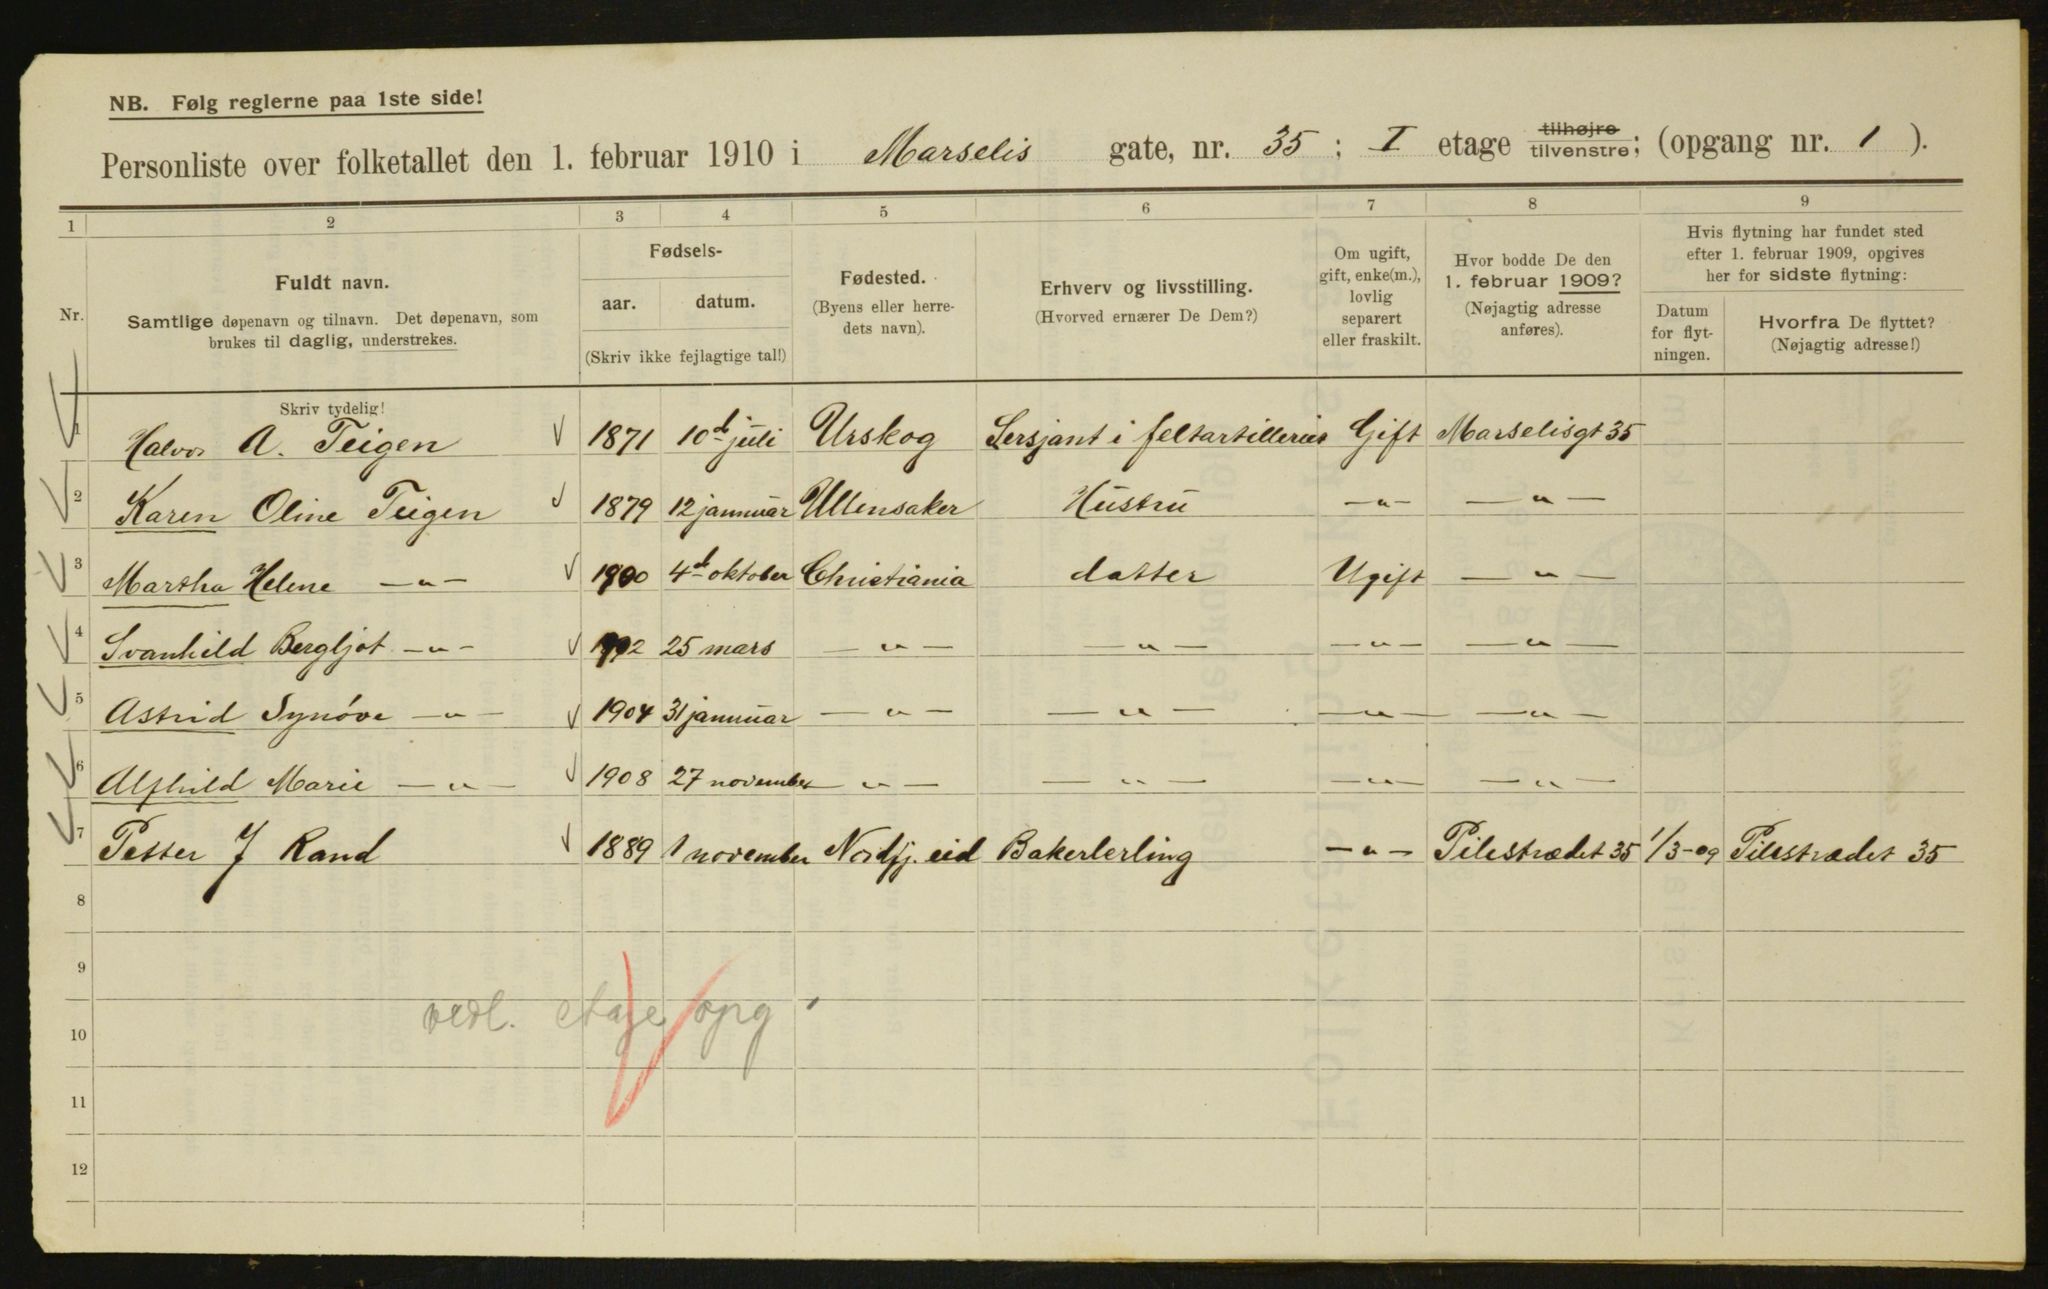 NB. Følg reglerne paa 1ste side!
Personliste over folketallet den 1. februar 1910 i Marselis gate, nr. 35 ; I etage tilhøjre tilvenstre; (opgang nr. 1 ).
1 2 3 4 5 6 7 8 9
Nr.
Fuldt navn.
Samtlige døpenavn og tilnavn. Det døpenavn, som
brukes til daglig, understrekes.
Fødsels-
aar. datum.
(Skriv ikke fejlagtige tal!)
Fødested.
(Byens eller herre-
dets navn).
Erhverv og livsstilling.
(Hvorved ernærer De Dem?)
Om ugift,
gift, enke(m.),
lovlig
separert
eller fraskilt.
Hvor bodde De den
1. februar 1909?
(Nøjagtig adresse
anføres).
Hvis flytning har fundet sted
efter 1. februar 1909, opgives
her for sidste flytning:
Datum
for flyt-
ningen.
Hvorfra De flyttet?
(Nøjagtig adresse!)
Skriv tydelig!
1 Halvor A. Teigen 1871 10d juli Urskog Sersjant i feltartilleriet Gift Marselisgt 35
2 Karen Oline Teigen 1879 12 jannuar Ullensaker Hustru —„— —„—
3 Martha Helene —„— 1900 4d oktober Christiania datter Ugift —„—
4 Svanhild Bergljot —„— 1902 25 mars —„— —„— —„— —„—
5 Astrid Synóve —„— 1904 31 jannuar —„— —„— —„— —„—
6 Alfhild Marie —„— 1908 27 november —„— —„— —„— —„—
7 Petter J Rand 1889 1 november Nordfj. eid Bakerlerling —„— Pilestrædet 35 1/3-09 Pilestrædet 35
8
9
vedl. etage opg
10
11
12